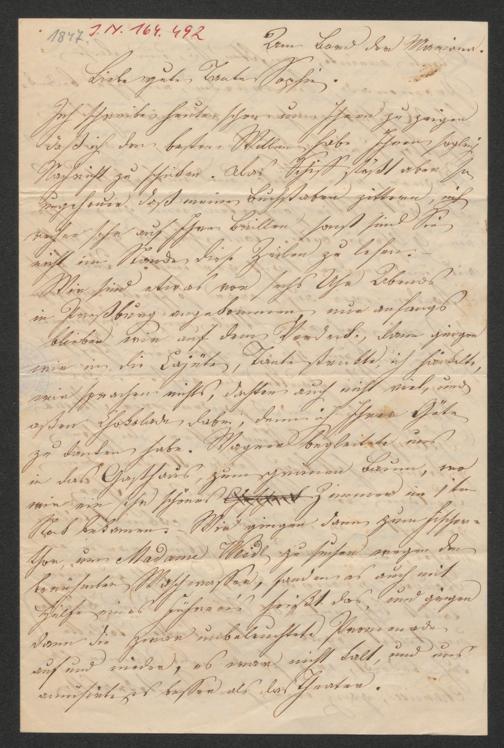 1847 I.N. 164.492
Am Bord der Marianna.
Liebe gute Tante Sophie.
Ich schreibe heute schon um Ihnen zu zeigen
daß ich den besten Willen habe Ihnen sogleich
Nachricht zu schicken. Das Schiff stoßt aber so
ungeheuer, daß meine Buchstaben zittern, ich
rechne sehr auf Ihre Brillen sonst sind Sie
nicht im Stande diese Zeilen zu lesen.
Wir sind etwas vor sechs Uhr Abends
in Preßburg angekommen, nur anfangs
blieben wir auf dem Verdeck, dann gingen
wir in die Cajüte, Tante strickte, ich häckelte,
wir sprachen nichts, dachten auch nicht viel, und
aßen Chokolade dabei, die ich Ihrer Güte
zu danken habe. Wagner begleitete uns
in das Gasthaus zum grünen Baum, wo
wir ein sehr schönes Zimmer im 1ten
Stock bekamen. Wir gingen dann zum Fischer-
thor, um Madame Weidl zu suchen wegen des
berühmten Waschwassers, fanden es auch mit
Hilfe eines Führers heißt das, und gingen
dann die zwar unbeleuchtete Promenade
auf und nieder, es war nicht kalt, und uns
amüsirte es besser als das Theater.